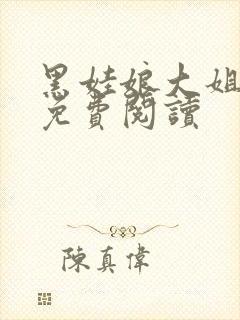 黑娃娘大姐
免費閱讀
陳真偉